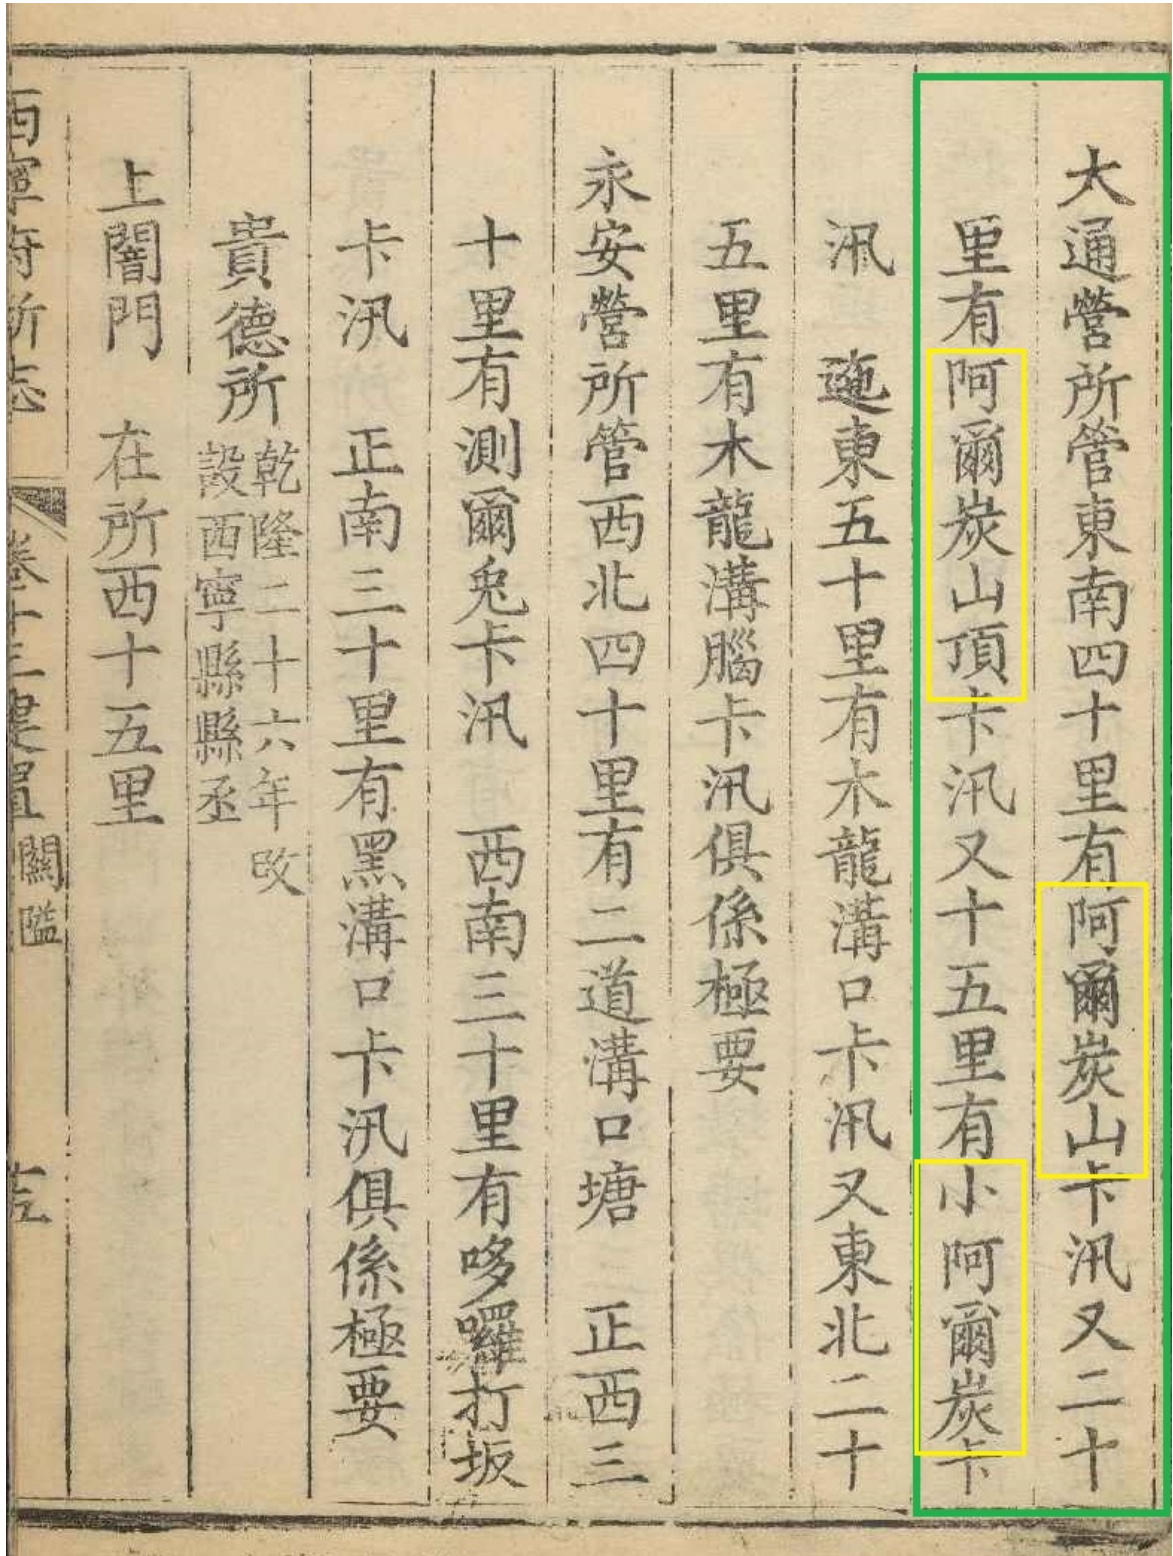 大通營所管東南四十里有阿爾炭山卡汛又二十
里有阿爾炭山頂卡汛又十五里有小阿爾炭卡
汛　迤東五十里有木龍溝口卡汛又東北二十
五里有木龍溝腦卡汛俱係極要
永安營所管西北四十里有二道溝口塘　正西三
十里有測爾兎卡汛　西南三十里有哆囉打坂
卡汛　正南三十里有黑溝口卡汛俱係極要
貴德所
乾隆二十六年改
設西寧縣縣丞
上闇門　在所西十五里
西寧府所志　卷十三建置
關隘